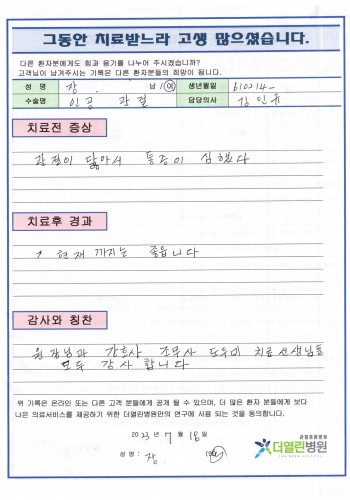 그동안 치료받느라 고생 많으셨습니다.
다른 환자분에게도 힘과 용기를 나누어 주시겠습니까?
고객님이 남겨주시는 기록은 다른 환자분들의 희망이 됩니다.
성 명 장 남 / 여 생년월일 610214-
수술명 인공 관절 담당의사 김인규
치료전 증상
관절이 닳아서 통증이 심했다
치료후 경과
현재 까지는 좋읍니다
감사와 칭찬
원장님과 간호사 조무사 도우미 치료선생님들
모두 감사 합니다
위 기록은 온라인 또는 다른 고객 분들에게 공개 될 수 있으며, 더 많은 환자 분들에게 보다
나은 의료서비스를 제공하기 위한 더열린병원만의 연구에 사용 되는 것을 동의합니다.
2023 년 7 월 18 일
성 명 : 장
관절중점병원
더열린병원